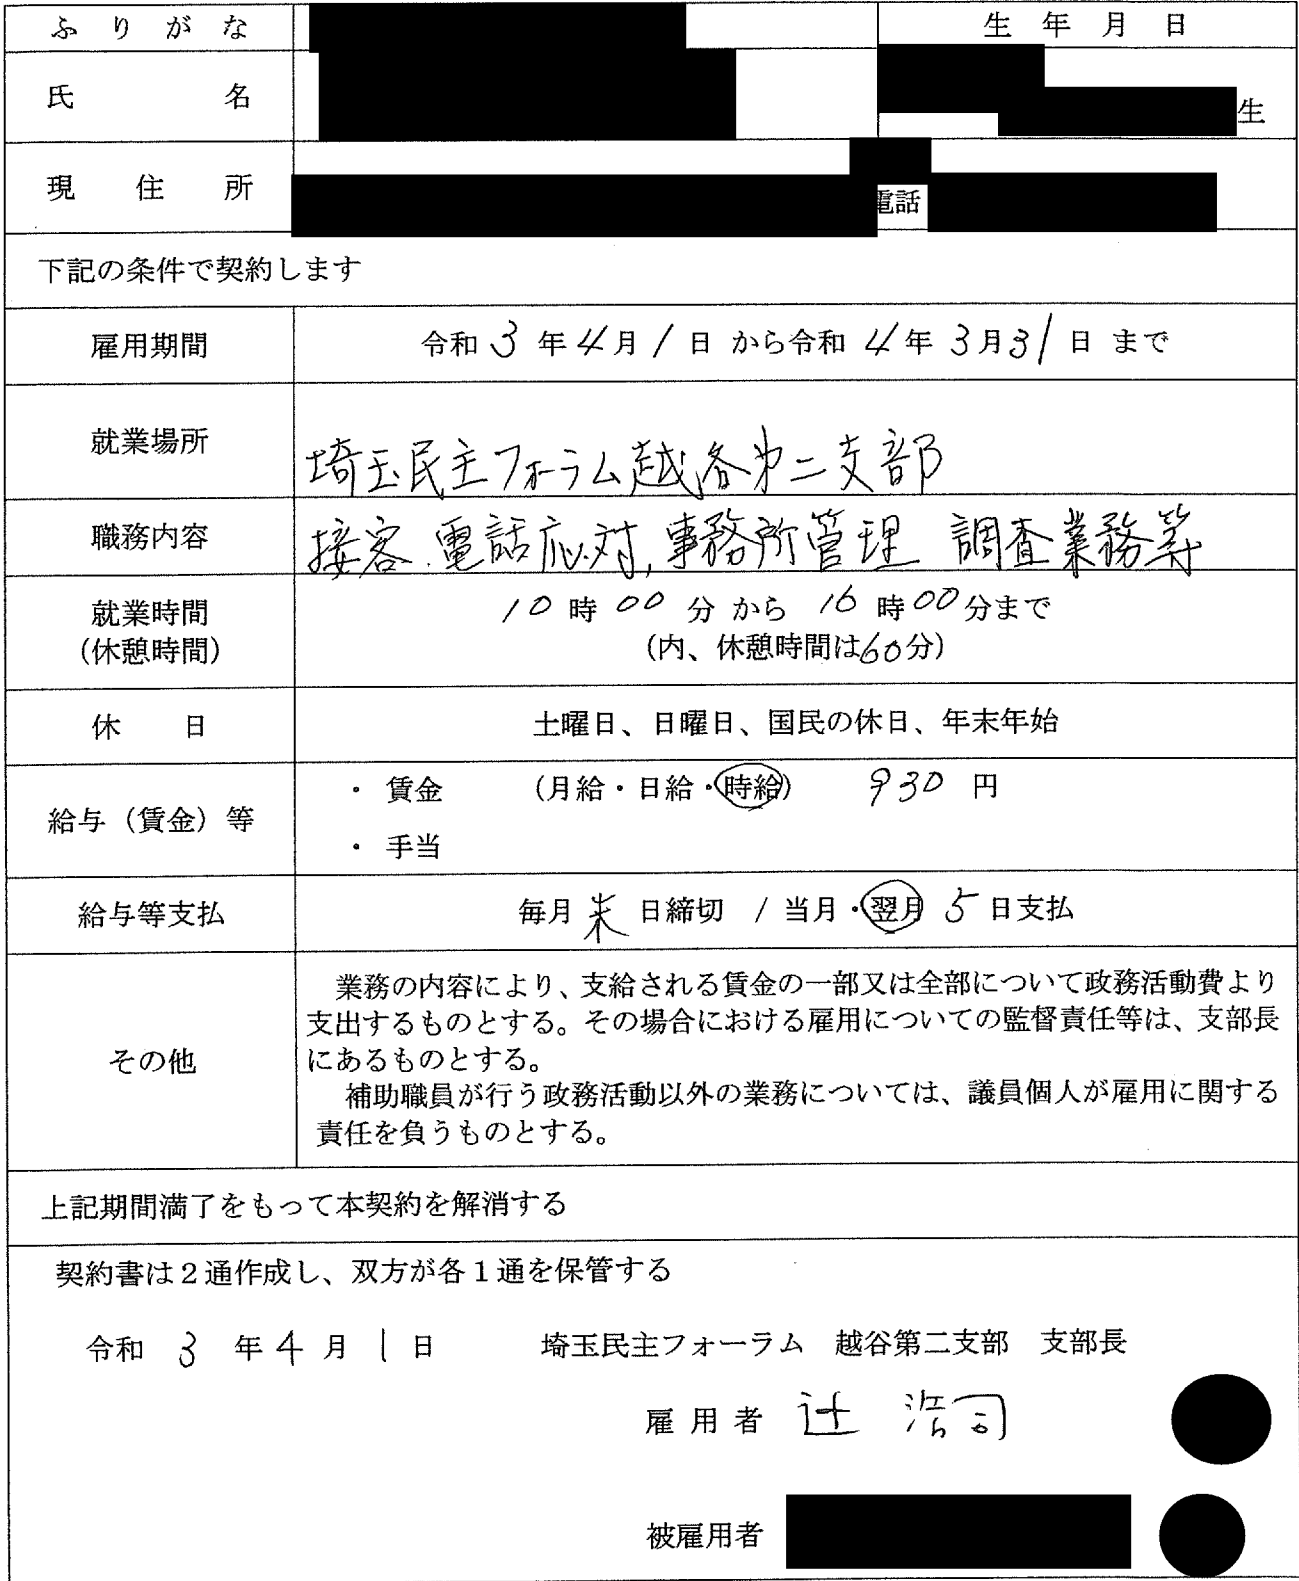 ふりがな
生年月日
氏名
生
現住所
電話
下記の条件で契約します
雇用期間
令和 3 年 4 月 1 日 から令和 4 年 3 月 31 日 まで
就業場所
埼玉民主フォーラム越谷第二支部
職務内容
接客、電話応対、事務所管理 調査業務等
就業時間
(休憩時間)
10 時 00 分 から 16 時 00 分まで
(内、休憩時間は60分)
休日
土曜日、日曜日、国民の休日、年末年始
給与（賃金）等
・ 賃金 (月給・日給・時給) 930 円
・ 手当
給与等支払
毎月 末 日締切 / 当月・翌月 5 日支払
その他
業務の内容により、支給される賃金の一部又は全部について政務活動費より
支出するものとする。その場合における雇用についての監督責任等は、支部長
にあるものとする。
補助職員が行う政務活動以外の業務については、議員個人が雇用に関する
責任を負うものとする。
上記期間満了をもって本契約を解消する
契約書は２通作成し、双方が各１通を保管する
令和 3 年 4 月 1 日 埼玉民主フォーラム 越谷第二支部 支部長
雇用者 辻 浩司
被雇用者